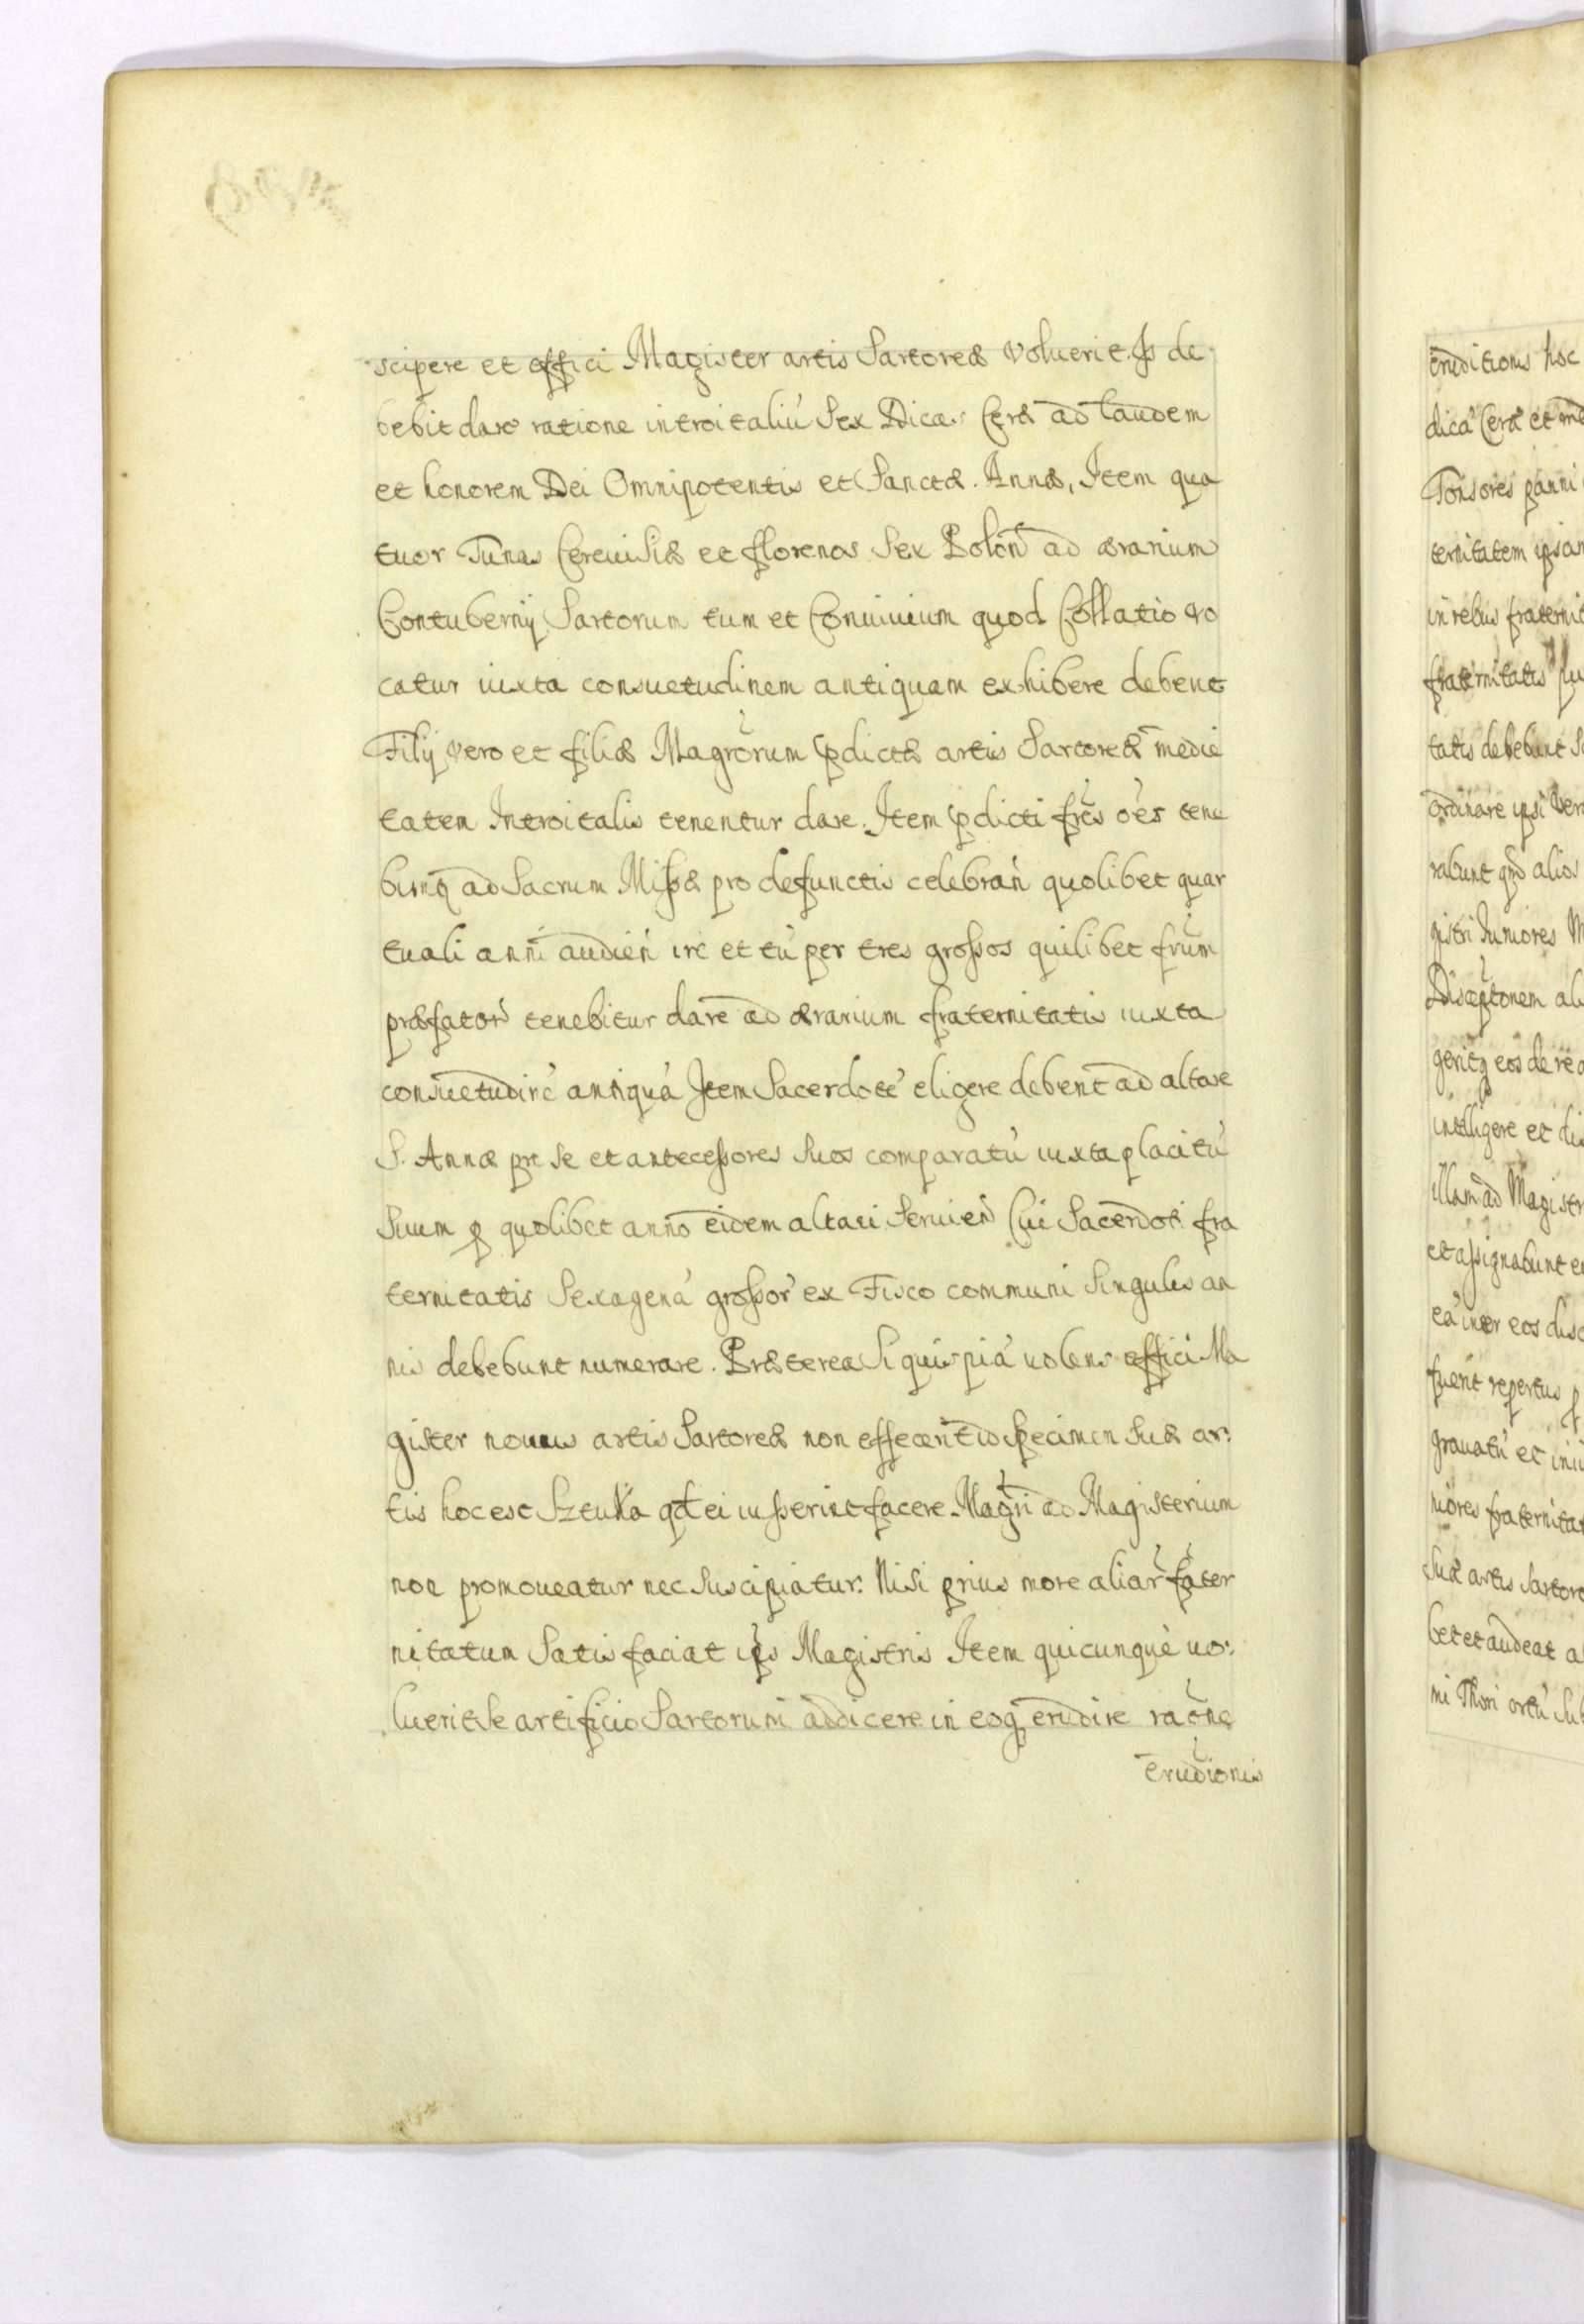 scipere et effici Magister artis Sartoreæ Voluerit. Is de
bebit dare ratione introitaliu̓ Sex Dicas Ceræ ad laudem
et honorem Dei Omnipotentis et Sanctæ. Annæ, Item qua
tuor Tunas Cereuisiæ et florenos Sex Polon̄ ad ærarium
Contubernÿ Sartorum tum et Conuiuium quod Collatio vo
catur iuxta consuetudinem antiquam exhibere debent
Filÿ vero et filiæ Magrõrum p̱dictæ artis Sartoreæ medie
tatem Introitalis tenentur dare. Item p̱dicti frẽs oẽs tene
bunt̃ ad Sacrum Missæ pro defunctis celebran̓ quolibet quar
tuali anni audien̓ ire et tu̓ per tres grossos quilibet frũm
præfator̓ tenebitur dare ad ærarium fraternitatis iuxta
consuetudine̓ antiqua̓ Item Sacerdote̓ eligere debent ad altare
S. Annæ per se et antecessores Suos comparatu̓ iuxta placitu̓
Suum p̱ quolibet anno eidem altari Seruien̓ Cui Sacerdoti fra
ternitatis Sexagena̓ grossor̓ ex Fisco communi Singulis an
nis debebunt numerare. Præterea Si quispia̓ uolens effici Ma
gister nouus artis Sartoreæ non effecerit id specimen Suæ ar:
tis hoc est Sztuka qd̃ ei iusserint facere. Magrĩ ad Magisterium
non promoueatur nec Suscipiatur. Nisi prius more aliar̃ frater
nitatum Satisfaciat ip̃s Magistris Item quicunquè uo:
luerit Se artificio Sartorum addicere in eoq̃ erudire raõne
erudiõnis
erudiționis hoc
dica̓ Ceræ et
Tonsores panni
ternitatem ipsam
in rebus fraternit
fraternitatis
tatis debebunt
ordinare ipsi Ver
rabunt alios
gistri Iuniores
ali
eos de re
intelligere et
illam ad Magistr
et assignabunt
ea̓ inter eos disc
fuerit repertus
grauatu̓ et iniu
niores fraternitat
Suæ artis Sartore
bet et audeat
mi Thori ortu̓